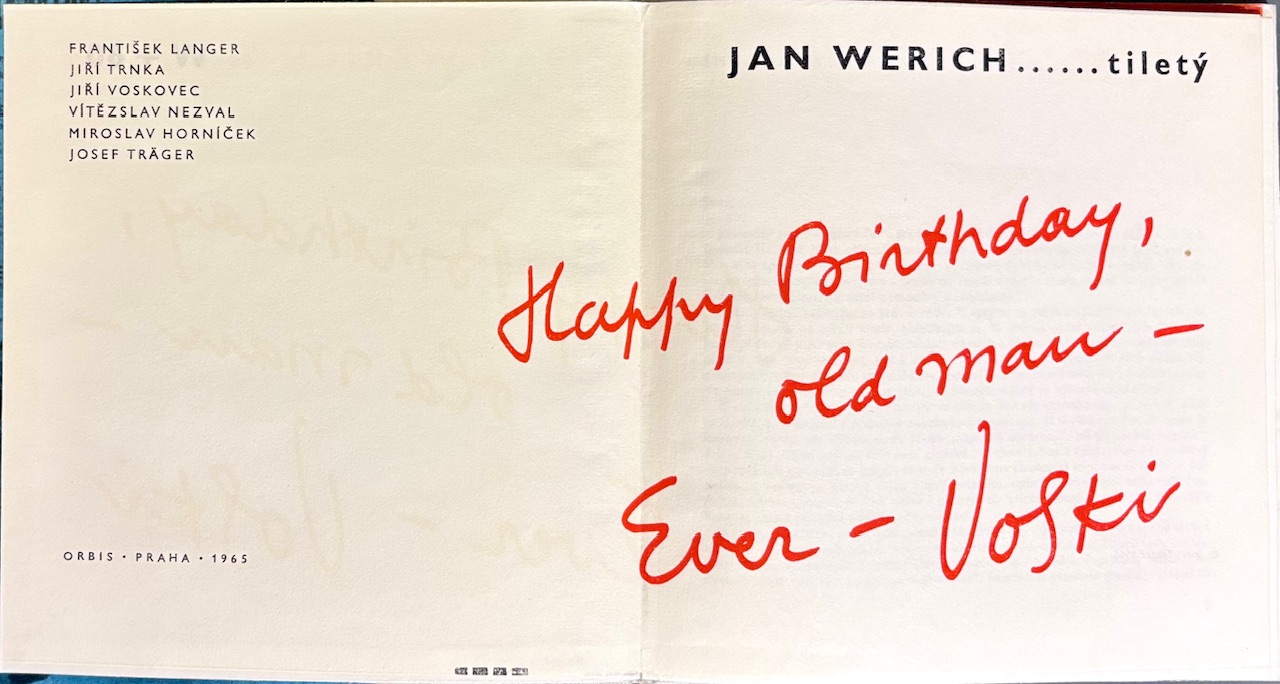 FRANTIŠEK LANGER
JIŘÍ TRNKA
JIŘÍ VOSKOVEC
VÍTĚZSLAV NEZVAL
MIROSLAV HORNÍČEK
JOSEF TRÄGER
ORBIS • PRAHA • 1965
JAN WERICH......tiletý
Happy Birthday,
old man –
Ever – Voski